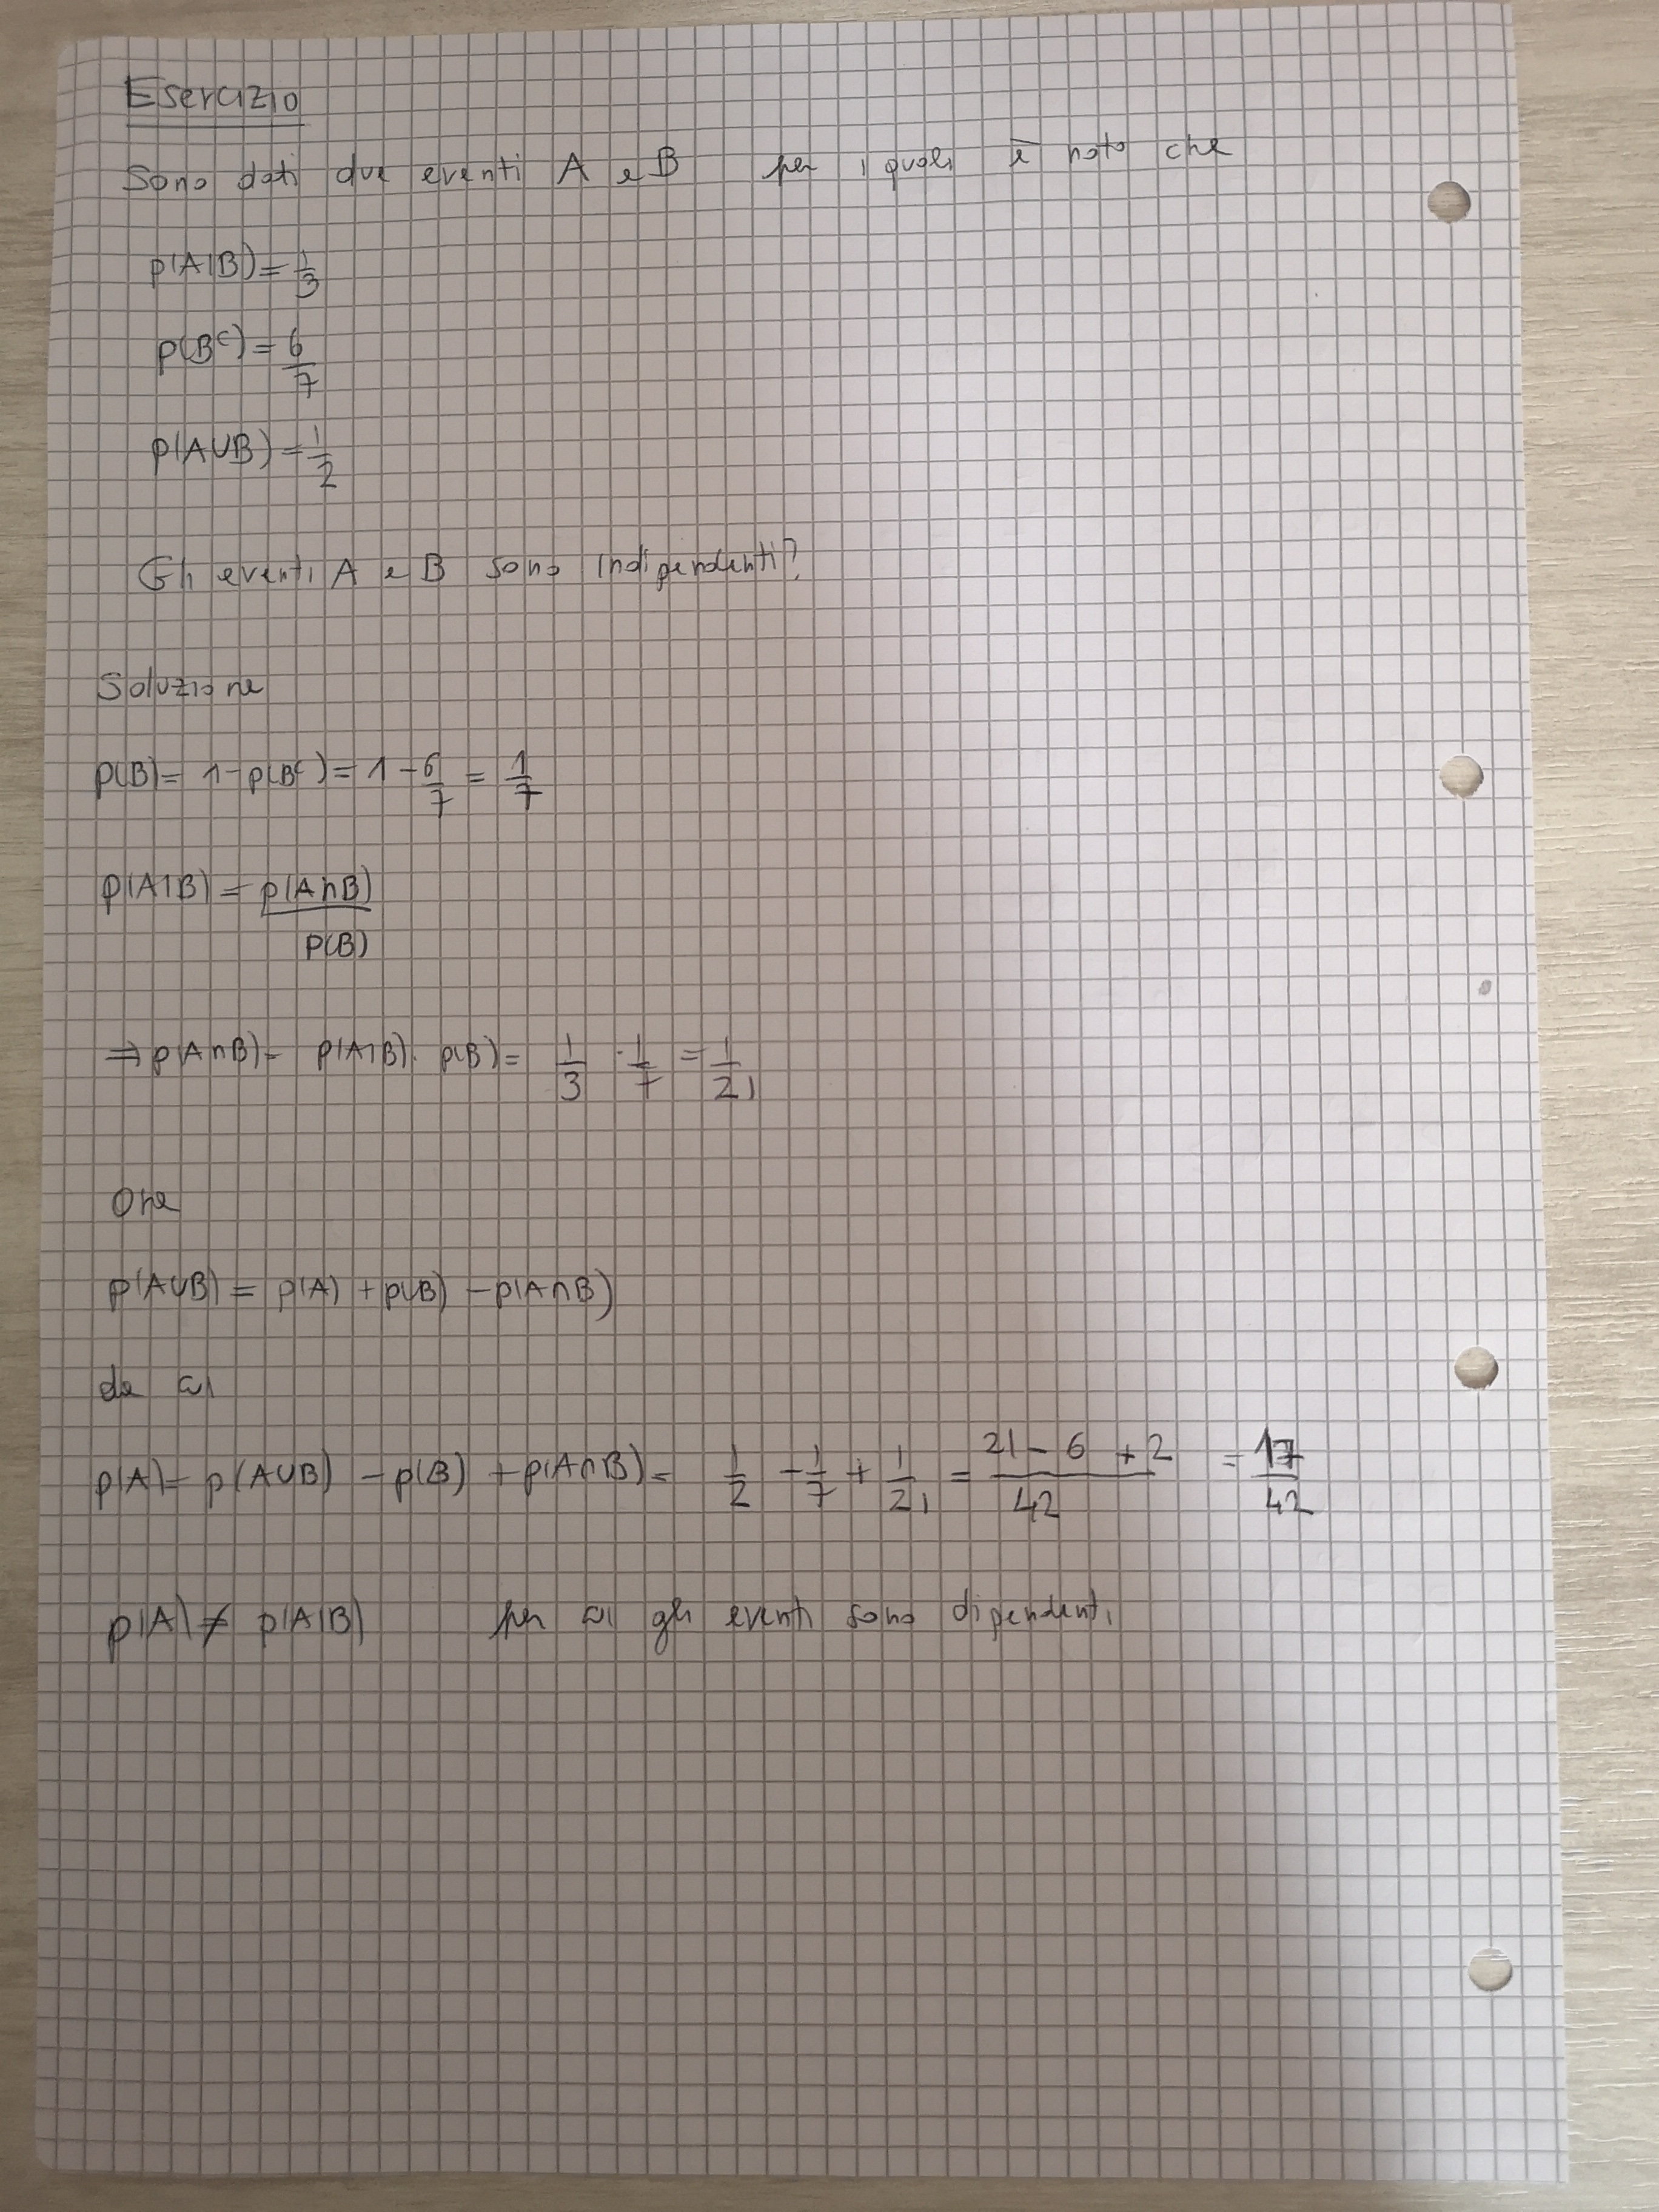 Esercizio
Sono dati due eventi A e B per i quali è noto che
p(A|B) = 1/3
p(Bᶜ) = 6/7
p(A∪B) = 1/2
Gli eventi A e B sono indipendenti?
Soluzione
p(B) = 1 - p(Bᶜ) = 1 - 6/7 = 1/7
p(A|B) = p(A∩B)/p(B)
⇒ p(A∩B) = p(A|B) · p(B) = 1/3 · 1/7 = 1/21
Ora
p(A∪B) = p(A) + p(B) - p(A∩B)
da cui
p(A) = p(A∪B) - p(B) + p(A∩B) = 1/2 - 1/7 + 1/21 = (21 - 6 + 2)/42 = 17/42
p(A) ≠ p(A|B) per cui gli eventi sono dipendenti